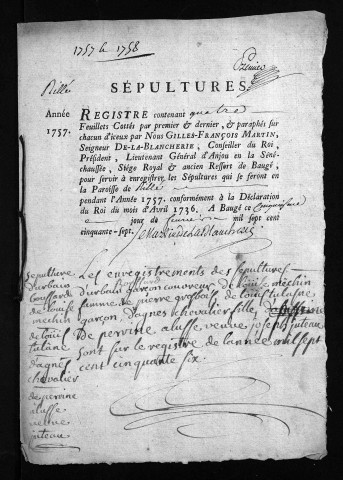 1757 à 1758
Rillé
SÉPULTURES
Année
1757.
REGISTRE contenant quatre
Feuillets Cottés par premier & dernier, & paraphés sur
chacun d'iceux par Nous GILLES-FRANÇOIS MARTIN,
Seigneur DE-LA-BLANCHERIE, Conseiller du Roi,
Président, Lieutenant Général d'Anjou en la Séné-
chaussée, Siége Royal & ancien Ressort de Baugé,
pour servir à enregistrer les Sépultures qui se feront en
la Paroisse de Rillé
pendant l'Année 1757. conformément à la Déclaration
du Roi du mois d'Avril 1736. A Baugé ce
jour de mil sept
cinquante-sept.
Sépulture
d'urbain
Gouffard
de louise
mechin
de louis
tulane
d'agnes
chevalier
de perrine
alusse
veuve
juteau
Les enregistrements des sépultures
d'urbain garçon couvreur de louise mechin
femme de pierre de louis tulasne
garçon, d'agnes chevalier fille,
De perrine alusse, veuve joseph juteau
sont sur le registre de lannée mil sept
cent cinquante six.